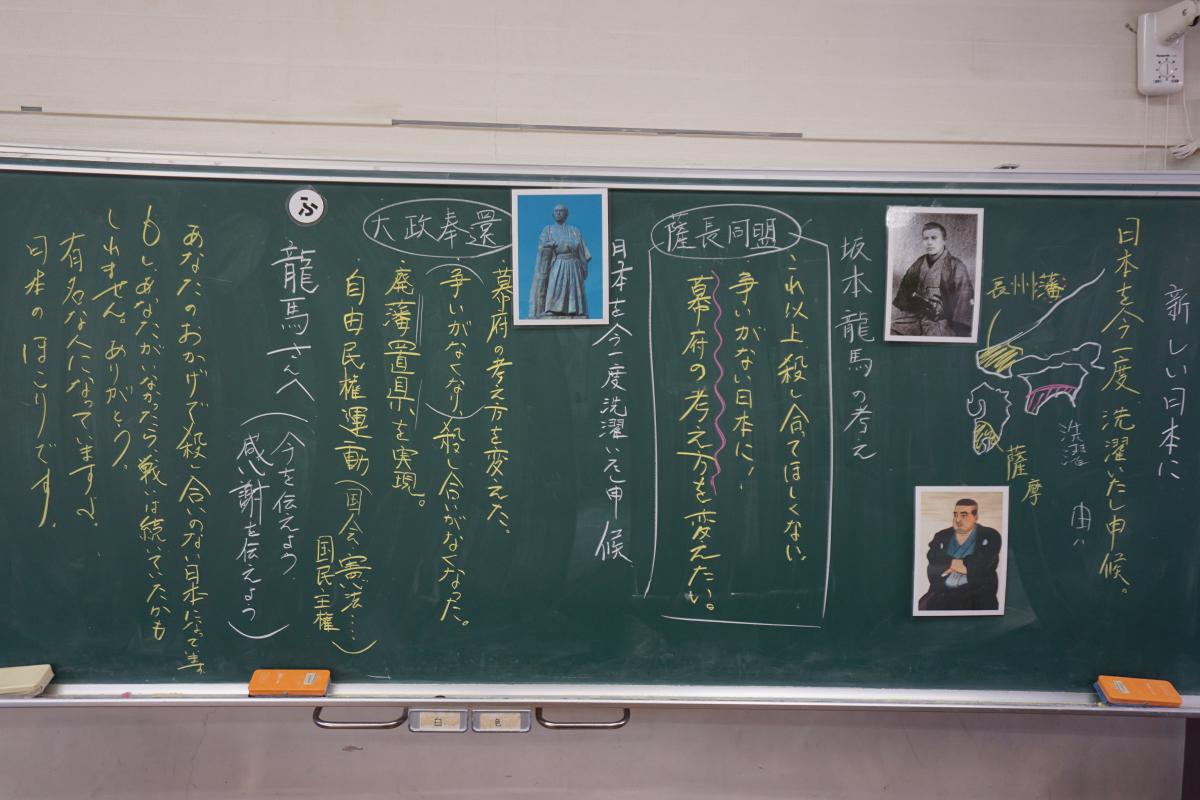 新しい日本に
日本を今一度、洗濯いたし申候。
洗濯
長州藩
薩摩
坂本龍馬の考え
薩長同盟
これ以上殺し合ってほしくない。
争いがない日本に！
幕府の考え方を変えたい。
日本を今一度洗濯いたし申候
大政奉還
幕府の考え方を変えた。
争いがなくなり、殺し合いがなくなった。
廃藩置県を実現。
自由民権運動（国会、憲法…）
国民主権
ふ
龍馬さんへ
（今を伝えよう
感謝を伝えよう）
あなたのおかげで殺し合いのない日本になっています。
もしあなたがいなかったら、戦いは続いていたかも
しれません。ありがとう。
有名な人になっていますよ。
日本のほこりです。
白
色